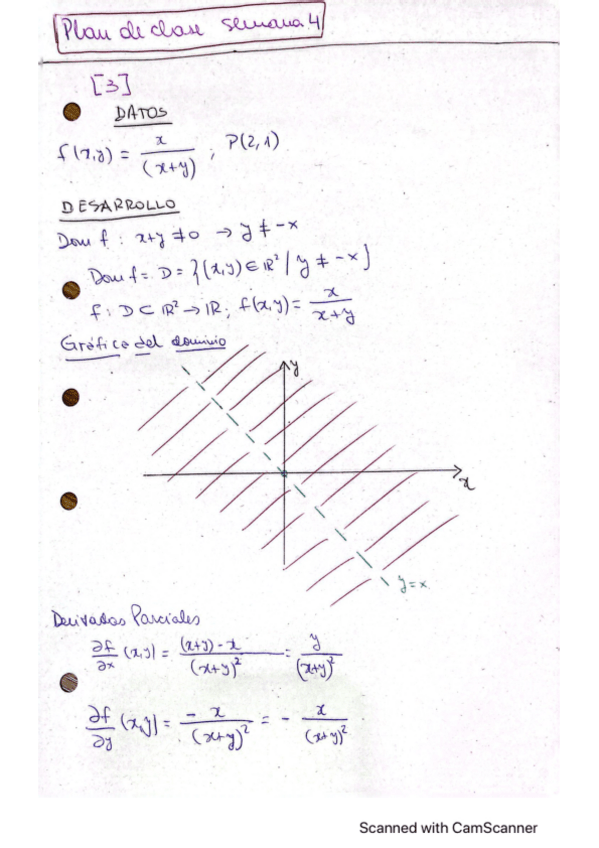 Plan de clase semana 4
[3]
DATOS
f(x,y) = x/(x+y) ; P(2,1)
DESARROLLO
Dom f : x+y ≠ 0 → y ≠ -x
Dom f = D = {(x,y) ∈ ℝ² / y ≠ -x}
f : D ⊂ ℝ² → ℝ ; f(x,y) = x/(x+y)
Gráfica del dominio
y
x
y=x
Derivadas Parciales
∂f/∂x (x,y) = ((x+y) - x)/(x+y)² = y/(x+y)²
∂f/∂y (x,y) = - x/(x+y)² = - x/(x+y)²
Scanned with CamScanner